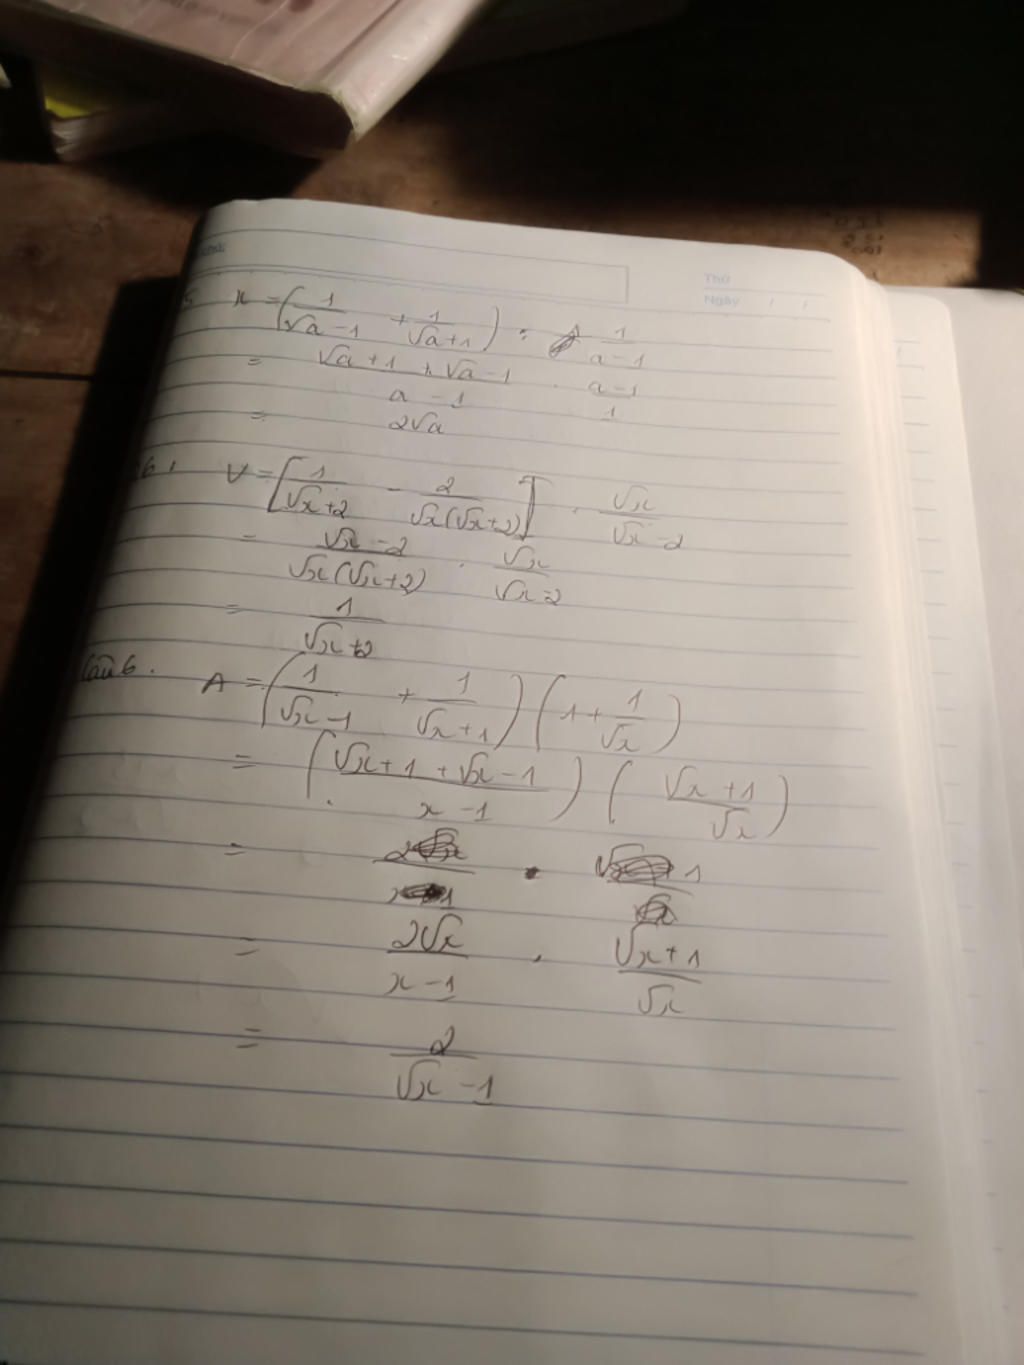 Thứ
Ngày / /
5 x = (1/(√a-1) + 1/(√a+1)) : 1/(a-1)
= (√a+1+√a-1)/(a-1) . (a-1)/1
= 2√a
6, V = [1/(√x+2) - 2/(√x(√x+2))] . √x/(√x-2)
= (√x-2)/(√x(√x+2)) . √x/(√x-2)
= 1/(√x+2)
Câu 6. A = (1/(√x-1) + 1/(√x+1)) (1 + 1/√x)
= ((√x+1+√x-1)/(x-1)) ((√x+1)/√x)
=
= 2√x/(x-1) . (√x+1)/√x
= 2/(√x-1)